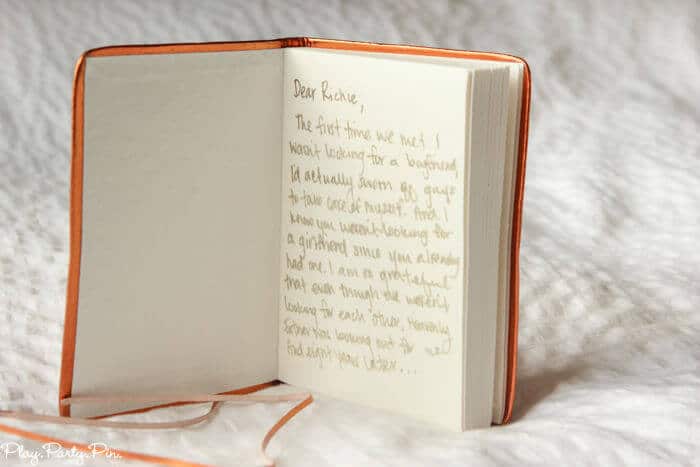 Dear Richie,
The first time we met I
wasn't looking for a boyfriend,
I'd actually sworn off guys
to take care of myself. And I
know you weren't looking for
a girlfriend since you already
had one. I am so grateful
that even though we weren't
looking for each other, Heavenly
Father was looking out for me
And eight years later...
Play.Party.Pin.